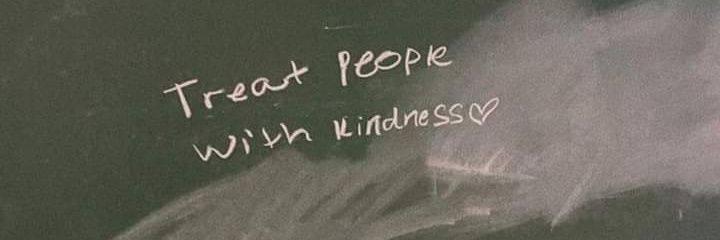 Treat People
With Kindness♡